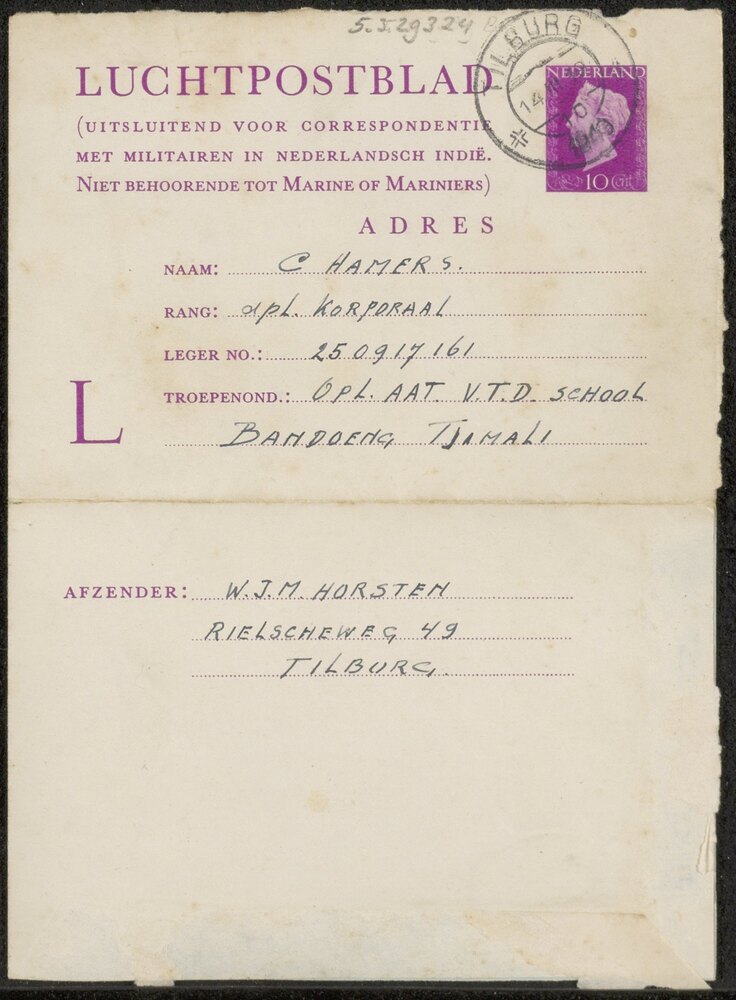 5.I.29324
TILBURG
1949
LUCHTPOSTBLAD
NEDERLAND
10 Cnt
(UITSLUITEND VOOR CORRESPONDENTIE
MET MILITAIREN IN NEDERLANDSCH INDIË.
NIET BEHOORENDE TOT MARINE OF MARINIERS)
ADRES
NAAM: C HAMERS.
RANG: dpl. KORPORAAL
LEGER NO.: 250917161
TROEPENOND.: OPL. AAT. V.T.D. SCHOOL
L
BANDOENG TJIMALI
AFZENDER: W.J.M. HORSTEN
RIELSCHEWEG 49
TILBURG.